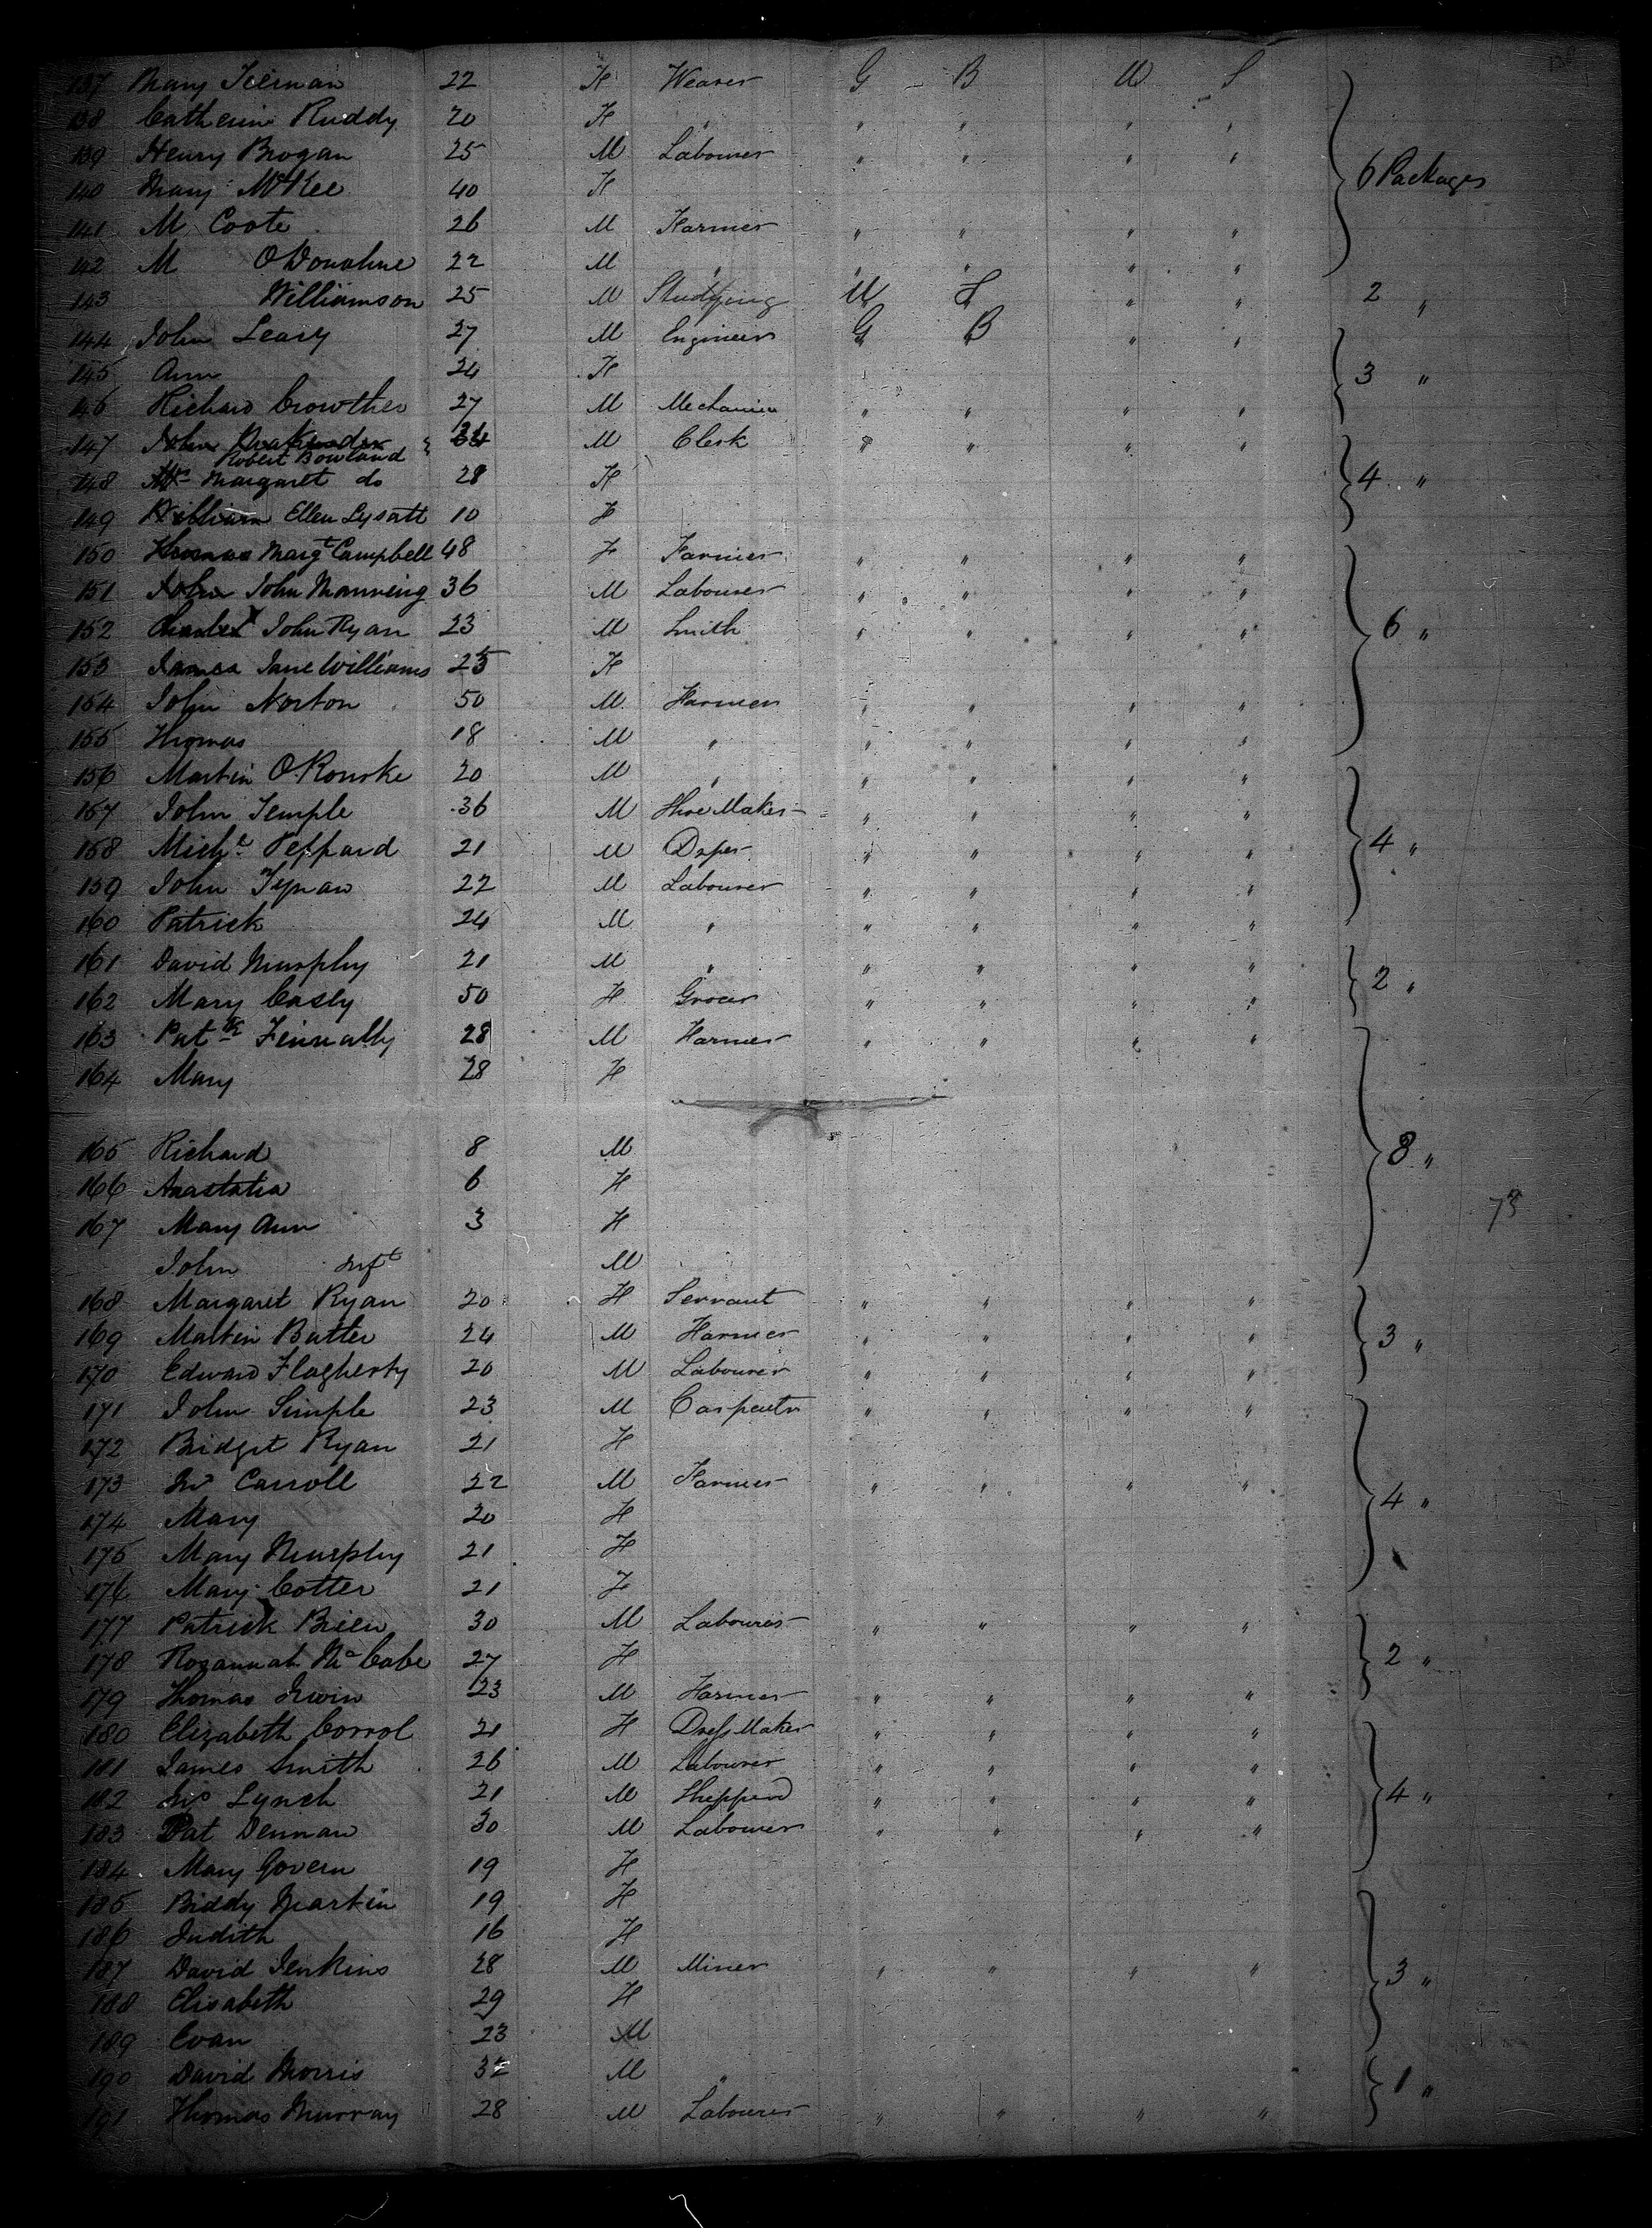 137 Mary Tiernan 22 F Weaver G B U S
138 Catherine Ruddy 20 F " " " " "
139 Henry Brogan 25 M Labourer " " " "
140 Mary McKee 40 F 6 Packages
141 M Coote 26 M Farmer " " " "
142 M O'Donahue 22 M " " " " "
143 Williamson 25 M Studying U S " " 2 "
144 John Leary 27 M Engineer G B " "
145 Ann 24 F 3 "
146 Richard Crowther 27 M Mechanic " " " "
147 John M Clerk " " " "
Robert Bowland
148 Margaret do 28 F 4 "
149 William Ellen Lysatt 10 F
150 Thomas Margt Campbell 48 F Farmer " " " "
151 John John Manning 36 M Labourer " " " "
152 Charles John Ryan 23 M Smith " " " " 6 "
153 James Jane Williams 25 F
154 John Norton 50 M Farmer " " " "
155 Thomas 18 M " " " " "
156 Martin O'Rourke 20 M " " " " "
157 John Temple 36 M Shoe Maker " " " "
158 Michl Peppard 21 M Draper " " " " 4 "
159 John Tynan 22 M Labourer " " " "
160 Patrick 24 M " " " " "
161 David Murphy 21 M " " " " "
162 Mary Casey 50 F Grocer " " " " 2 "
163 Patk Finnally 28 M Farmer " " " "
164 Mary 28 F
165 Richard 8 M 8 "
166 Anastatia 6 F
167 Mary Ann 3 F 78
John Inft M
168 Margaret Ryan 20 F Servant " " " "
169 Martin Butter 24 M Farmer " " " " 3 "
170 Edward Flagherty 20 M Labourer " " " "
171 John Simple 23 M Carpenter " " " "
172 Bridget Ryan 21 F
173 Jno Carroll 22 M Farmer " " " " 4 "
174 Mary 20 F
175 Mary Murphy 21 F
176 Mary Cotter 21 F
177 Patrick Brien 30 M Labourer " " " "
178 Rosannah McCabe 27 F 2 "
179 Thomas Irwin 23 M Farmer " " " "
180 Elizabeth Corrol 21 F Dress Maker " " " "
181 James Smith 26 M Labourer " " " "
182 Jno Lynch 21 M Shepperd " " " " 4 "
183 Pat Dennan 30 M Labourer " " " "
184 Mary Govern 19 F
185 Biddy Martin 19 F
186 Judith 16 F
187 David Jenkins 28 M Miner " " " " 3 "
188 Elisabeth 29 F
189 Evan 23 M
190 David Morris 32 M " 1 "
191 Thomas Murray 28 M Labourer " " " "